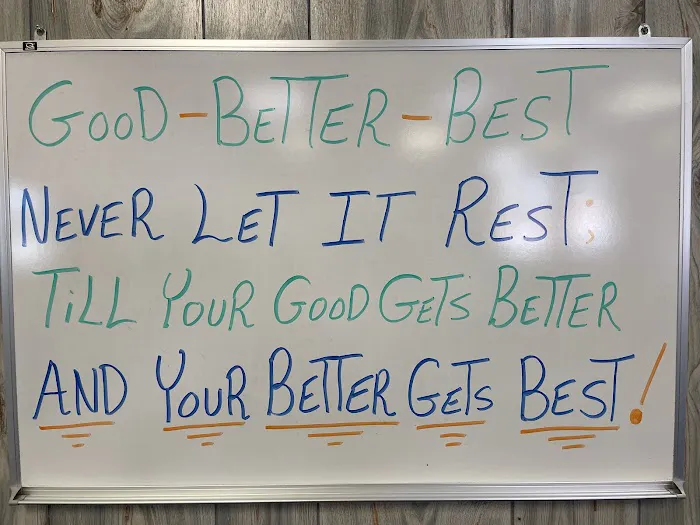 GOOD - BETTER - BEST
NEVER LET IT REST;
TiLL YOUR GOOD GETS BETTER
AND YOUR BETTER GETS BEST!